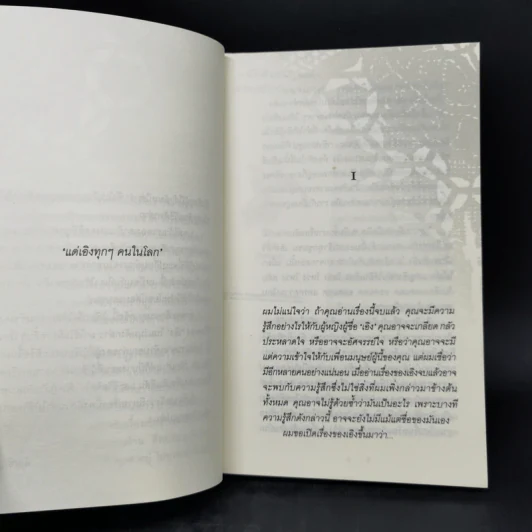 'แด่เอิงทุกๆ คนในโลก'
I
ผมไม่แน่ใจว่า ถ้าคุณอ่านเรื่องนี้จบแล้ว คุณจะมีความ
รู้สึกอย่างไรให้กับผู้หญิงผู้ชื่อ 'เอิง' คุณอาจจะเกลียด กลัว
ประหลาดใจ หรืออาจจะอัศจรรย์ใจ หรือว่าคุณอาจจะมี
แต่ความเข้าใจให้กับเพื่อนมนุษย์ผู้นี้ของคุณ แต่ผมเชื่อว่า
มีอีกหลายคนอย่างแน่นอน เมื่ออ่านเรื่องของเอิงจบแล้วอาจ
จะพบกับความรู้สึกซึ่งไม่ใช่สิ่งที่ผมเพิ่งกล่าวมาข้างต้น
ทั้งหมด คุณอาจไม่รู้ด้วยซ้ำว่ามันเป็นอะไร เพราะบางที
ความรู้สึกดังกล่าวนี้ อาจจะยังไม่มีแม้แต่ชื่อของมันเอง
ผมขอเปิดเรื่องของเอิงขึ้นมาว่า...